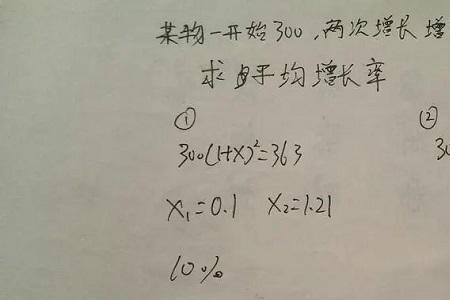 某物一开始300,两次增长增
求平均增长率
① ②
300(1+X)²=363 30
X₁=0.1 X₂=1.21
10%